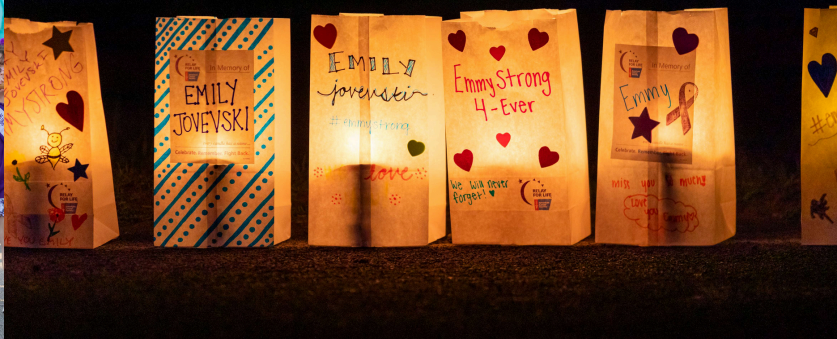 EMILY
JOVEVSKI
MYSTRONG
RELAY
FOR LIFE
YOU EMILY
RELAY
FOR LIFE
In Memory of
EMILY
JOVEVSKI
EMILY
jovevski
#emmystrong
love
EmmyStrong
4-Ever
We will never
forget!
RELAY
FOR LIFE
RELAY
FOR LIFE
In Memory of
Emmy
miss you much!
Love
you